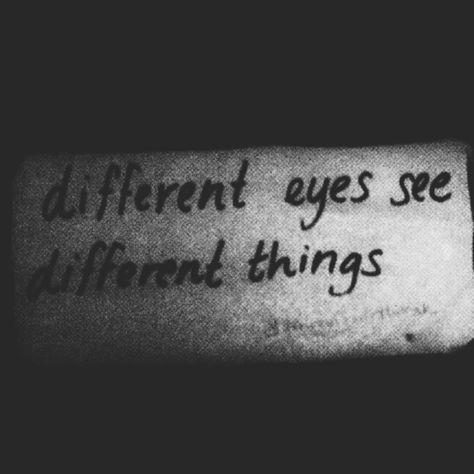 different eyes see
different things